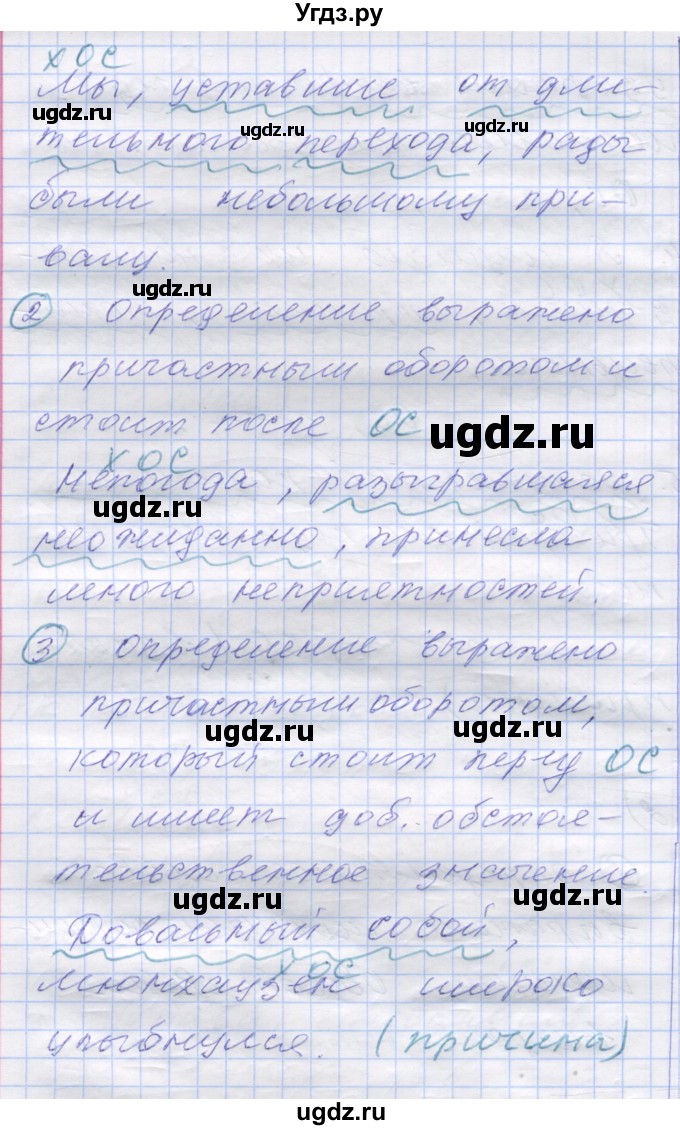 Угдз.ру
х ОС
Мы, уставшие от дли-
ugdz.ru
ugdz.ru ugdz.ru
тельного перехода, рады
были небольшому при-
валу.
ugdz.ru
② Определение выражено
причастным оборотом и
стоит после ОС
ugdz.ru
х ОС
Непогода, разыгравшаяся
ugdz.ru
неожиданно, принесла
много неприятностей.
③ определение выражено
причастным оборотом,
ugdz.ru ugdz.ru
который стоит перед ОС
и имеет доб. обстоя-
тельственное значение.
ugdz.ru ugdz.ru
Довольный собой,
х ОС
Мюнхаузен широко
улыбнулся. (причина)
ugdz.ru